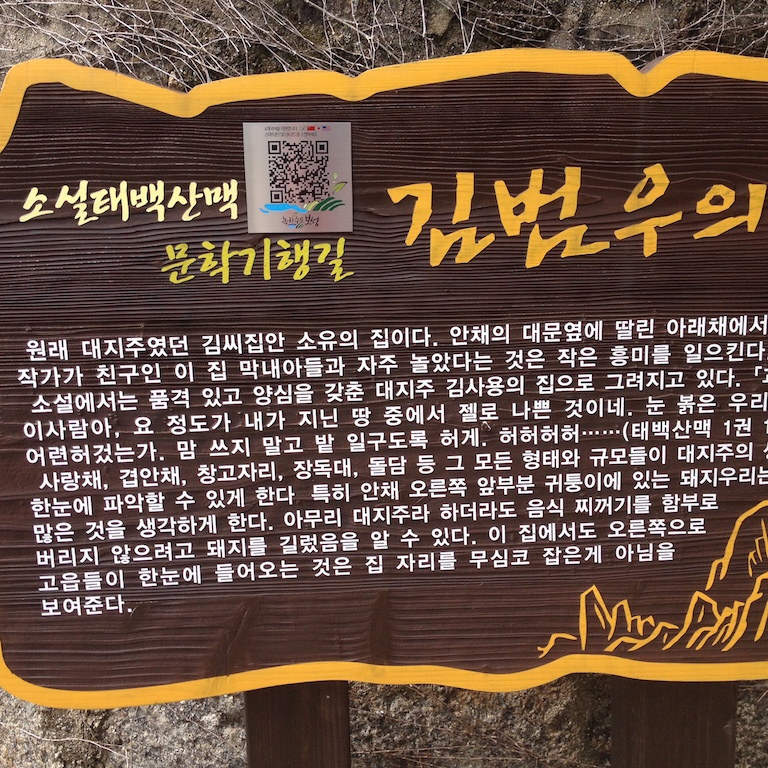 소설태백산맥
문학기행길
김범우의
원래 대지주였던 김씨집안 소유의 집이다. 안채의 대문옆에 딸린 아래채에서
작가가 친구인 이 집 막내아들과 자주 놀았다는 것은 작은 흥미를 일으킨다.
소설에서는 품격 있고 양심을 갖춘 대지주 김사용의 집으로 그려지고 있다.
이사람아, 요 정도가 내가 지닌 땅 중에서 젤로 나쁜 것이네. 눈 붉은 우리
어련허겄는가. 맘 쓰지 말고 밭 일구도록 허게. 허허허허……(태백산맥 1권
사랑채, 겹안채, 창고자리, 장독대, 돌담 등 그 모든 형태와 규모들이 대지주의
한눈에 파악할 수 있게 한다 특히 안채 오른쪽 앞부분 귀퉁이에 있는 돼지우리는
많은 것을 생각하게 한다. 아무리 대지주라 하더라도 음식 찌꺼기를 함부로
버리지 않으려고 돼지를 길렀음을 알 수 있다. 이 집에서도 오른쪽으로
고읍들이 한눈에 들어오는 것은 집 자리를 무심코 잡은게 아님을
보여준다.